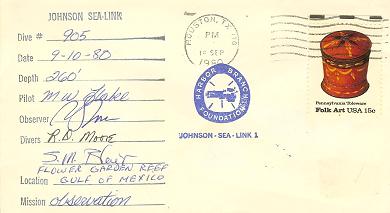 JOHNSON SEA-LINK
Dive # 905
Date 9-10-80
Depth 260'
Pilot M W
Observer
Divers R.D.
S.M.
FLOWER GARDEN REEF
Location GULF OF MEXICO
Mission Observation
HOUSTON, TX
PM
SEP
1980
HARBOR BRANCH
FOUNDATION
JOHNSON - SEA - LINK 1
Pennsylvania Toleware
Folk Art USA 15c